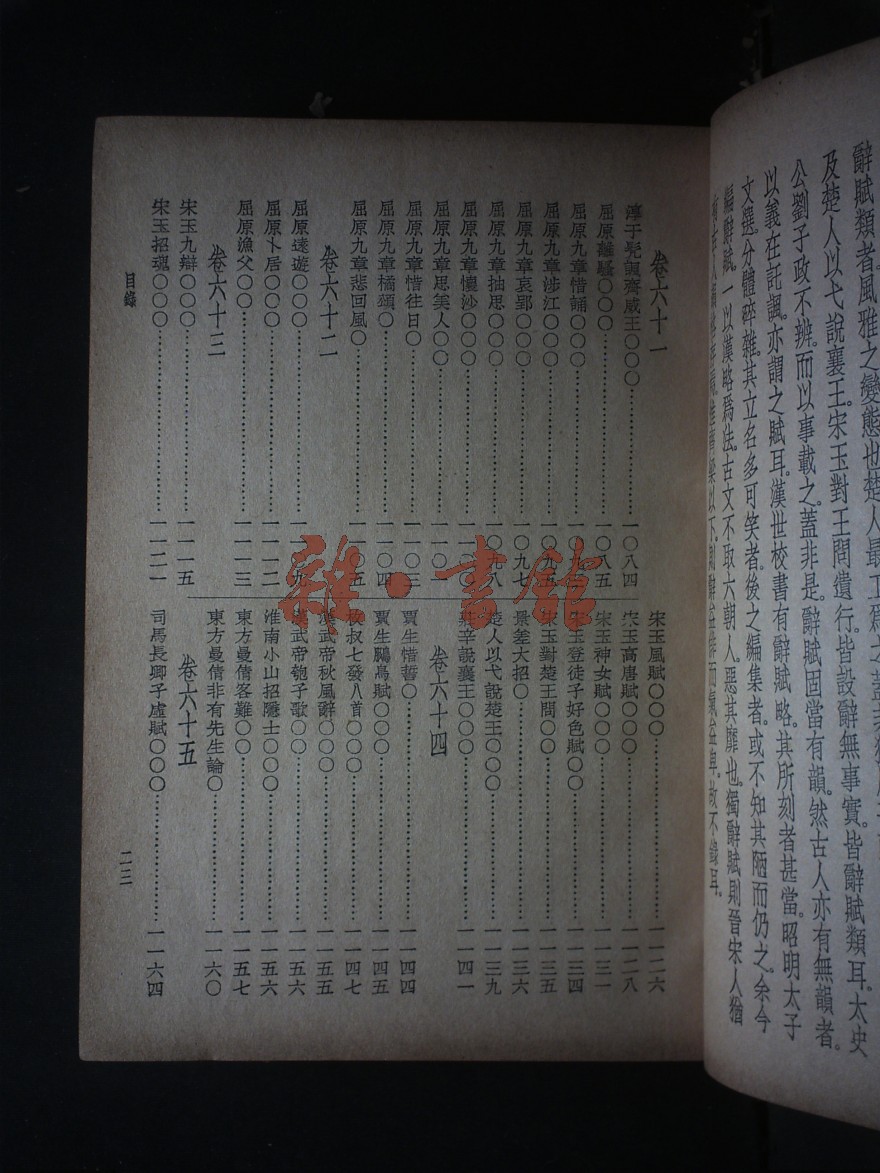 辭賦類者。風雅之變態也。楚人最工爲之。蓋非獨屈子
及楚人以弋說襄王。宋玉對王問遺行。皆設辭無事實。皆辭賦類耳。太史
公劉子政不辨。而以事載之。蓋非是。辭賦固當有韻。然古人亦有無韻者。
以義在託諷。亦謂之賦耳。漢世校書有辭賦略。其所列者甚當。昭明太子
文選分體碎雜。其立名多可笑者。後之編集者。或不知其陋而仍之。余今
編辭賦。一以漢略爲法。古文不取六朝人。惡其靡也。獨辭賦則晉宋人猶
則辭益俳而氣益卑。故不錄耳。
卷六十一
淳于髡諷齊威王〇〇〇……一〇八四
屈原離騷〇〇〇……一〇八五
屈原九章惜誦〇〇〇……
屈原九章涉江〇〇〇……一〇九五
屈原九章哀郢〇〇〇……一〇九七
屈原九章抽思〇〇〇……一〇九八
屈原九章懷沙〇〇〇……
屈原九章思美人〇〇……一一〇一
屈原九章惜往日〇……一一〇三
屈原九章橘頌〇〇……一一〇四
屈原九章悲回風〇……一一〇五
卷六十二
屈原遠遊〇〇〇……
屈原卜居〇〇〇……一一一二
屈原漁父〇〇……一一一三
卷六十三
宋玉九辯〇〇〇……一一一五
宋玉招魂〇〇〇……一一二一
宋玉風賦〇〇〇……一一二六
宋玉高唐賦〇〇〇……一一二八
宋玉神女賦〇〇……一一三一
宋玉登徒子好色賦〇〇……一一三四
宋玉對楚王問〇〇……一一三五
景差大招〇……一一三六
楚人以弋說楚王〇〇……一一三九
莊辛說襄王〇〇〇……一一四一
卷六十四
賈生惜誓〇……一一四四
賈生鵩鳥賦〇〇〇……一一四五
枚叔七發八首〇〇〇……一一四七
漢武帝秋風辭〇〇〇……一一五五
漢武帝瓠子歌〇〇〇……一一五六
淮南小山招隱士〇〇〇……一一五六
東方曼倩客難〇〇……一一五七
東方曼倩非有先生論〇……一一六〇
卷六十五
司馬長卿子虛賦〇〇〇……一一六四
目錄
二三
雜·書館